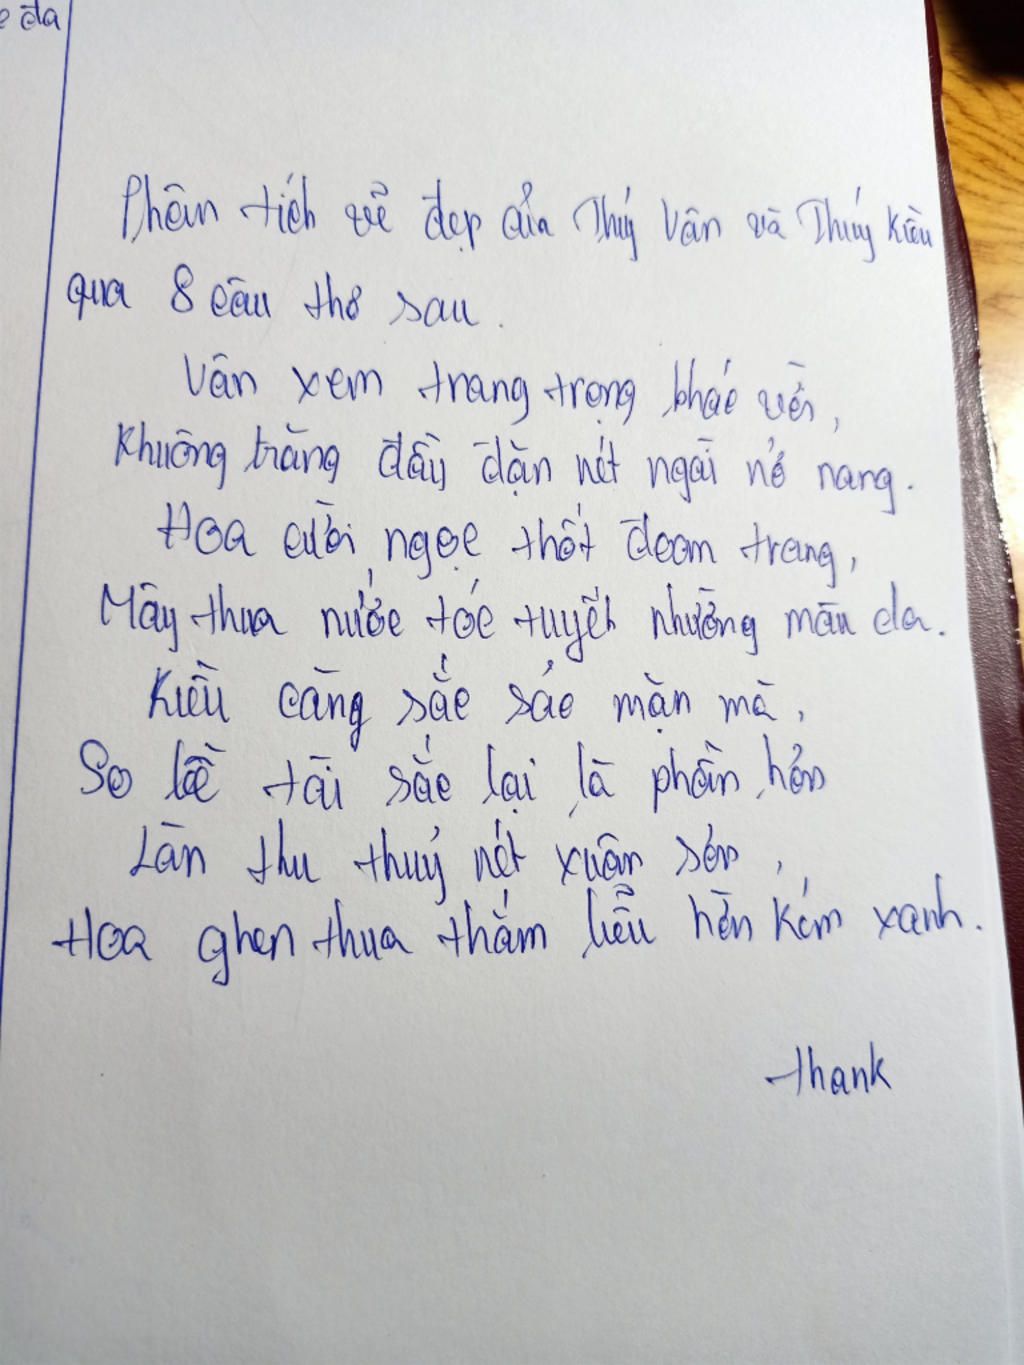 đa
Phân tích vẻ đẹp của Thúy Vân và Thúy Kiều
qua 8 câu thơ sau.
Vân xem trang trọng khác vời,
Khuông trăng đầy đặn nét ngài nở nang.
Hoa cười ngọc thốt đoan trang,
Mây thua nước tóc tuyết nhường màu da.
Kiều càng sắc sảo mặn mà,
So bề tài sắc lại là phần hơn
Làn thu thuỷ nét xuân sơn,
Hoa ghen thua thắm liễu hờn kém xanh.
thank